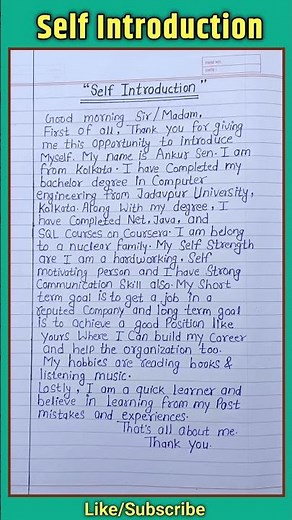 Self Introduction
PAGE NO.
DATE:
"Self Introduction"
Good morning Sir/Madam,
First of all, Thank you for giving
me this opportunity to introduce
Myself. My name is Ankur Sen. I am
from Kolkata. I have Completed my
bachelor degree in Computer
engineering from Jadavpur University,
Kolkata. Along with my degree, I
have Completed Net, Java, and
SQL Courses on Coursera. I am belong
to a nuclear family. My Self Strength
are I am a hardworking, Self
motivating person and I have Strong
Communication Skill also. My Short
term goal is to get a job in a
reputed Company and long term goal
is to achieve a good Position like
Yours Where I Can build my Career
and help the organization too.
My hobbies are reading books &
listening music.
Lastly, I am a quick learner and
believe in learning from my Past
mistakes and experiences.
That's all about me.
Thank you.
Like/Subscribe